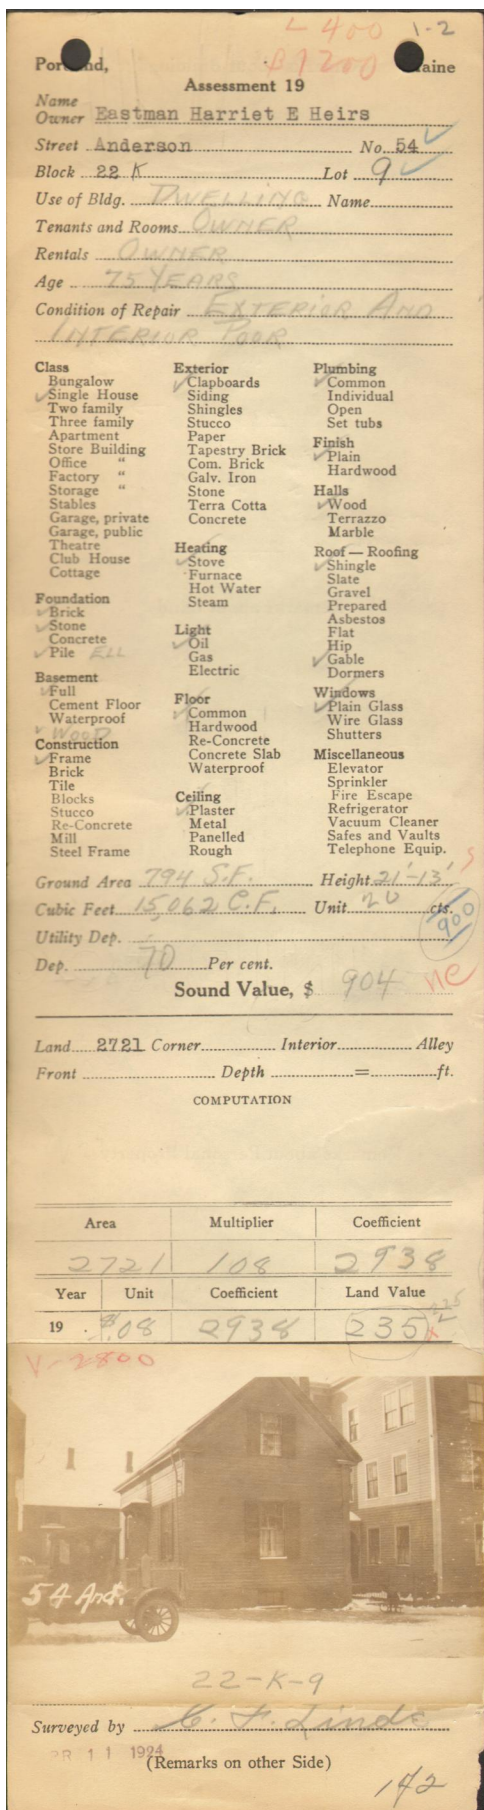 L 400 1-2
B1200
Portland, Maine
Assessment 19
Name
Owner Eastman Harriet E Heirs
Street Anderson No. 54
Block 22 K Lot 9
Use of Bldg. DWELLING Name
Tenants and Rooms OWNER
Rentals OWNER
Age 75 YEARS
Condition of Repair EXTERIOR AND
INTERIOR POOR
Class
Bungalow
✓Single House
Two family
Three family
Apartment
Store Building
Office "
Factory "
Storage "
Stables
Garage, private
Garage, public
Theatre
Club House
Cottage
Foundation
✓Brick
✓Stone
Concrete
✓Pile ELL
Basement
✓Full
Cement Floor
Waterproof
✓WOOD
Construction
✓Frame
Brick
Tile
Blocks
Stucco
Re-Concrete
Mill
Steel Frame
Exterior
✓Clapboards
Siding
Shingles
Stucco
Paper
Tapestry Brick
Com. Brick
Galv. Iron
Stone
Terra Cotta
Concrete
Heating
✓Stove
Furnace
Hot Water
Steam
Light
✓Oil
Gas
Electric
Floor
✓Common
Hardwood
Re-Concrete
Concrete Slab
Waterproof
Ceiling
✓Plaster
Metal
Panelled
Rough
Plumbing
✓Common
Individual
Open
Set tubs
Finish
✓Plain
Hardwood
Halls
✓Wood
Terrazzo
Marble
Roof — Roofing
✓Shingle
Slate
Gravel
Prepared
Asbestos
Flat
Hip
✓Gable
Dormers
Windows
✓Plain Glass
Wire Glass
Shutters
Miscellaneous
Elevator
Sprinkler
Fire Escape
Refrigerator
Vacuum Cleaner
Safes and Vaults
Telephone Equip.
Ground Area 794 S.F. Height 21'-13'
Cubic Feet 15,062 C.F. Unit 20 cts.
900
Utility Dep.
Dep. 70 Per cent.
Sound Value, $ 904
Land 2721 Corner Interior Alley
Front Depth = ft.
COMPUTATION
Area Multiplier Coefficient
2721 108 2938
Year Unit Coefficient Land Value
19 $.08 2938 235
V-2800
54 And.
22-K-9
Surveyed by C. F. Linds
PR 11 1924
(Remarks on other Side)
142